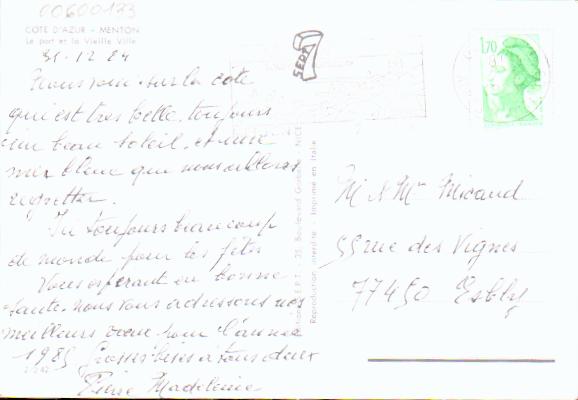 00600133
COTE D'AZUR - MENTON
Le port et la Vieille Ville
31-12 84
sur la cote
qui est tres belle, toujours
un beau soleil, et une
mer bleue que nous allons
regretter.
toujours beaucoup
de monde pour les fêtes
Vous esperant en bonne
sante, nous vous adressons nos
meilleurs voeux pour l'annee
1985 Grosses bises à tous deux
Pierre Madeleine
SEPT
1,70
Boulevard NICE
Reproduction interdite - Imprimé en Italie
M & Mme Micaud
55 rue des Vignes
77450 Esbly